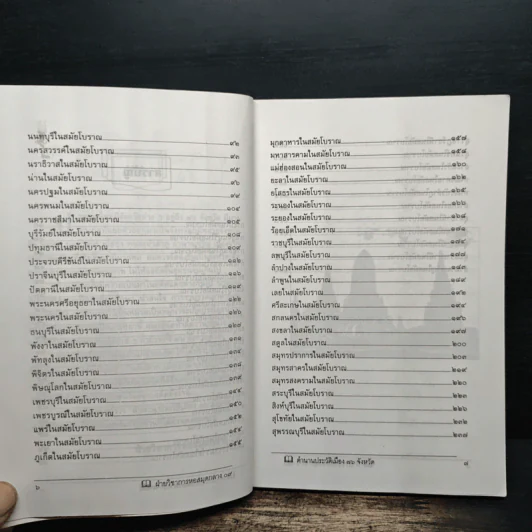 นนทบุรีในสมัยโบราณ ๙๒
นครสวรรค์ในสมัยโบราณ ๙๓
นราธิวาสในสมัยโบราณ ๙๕
น่านในสมัยโบราณ ๙๖
นครปฐมในสมัยโบราณ
นครพนมในสมัยโบราณ ๑๐๔
นครราชสีมาในสมัยโบราณ ๑๐๕
บุรีรัมย์ในสมัยโบราณ ๑๐๘
ปทุมธานีในสมัยโบราณ
ประจวบคีรีขันธ์ในสมัยโบราณ
ปราจีนบุรีในสมัยโบราณ
ปัตตานีในสมัยโบราณ
พระนครศรีอยุธยาในสมัยโบราณ ๑๒๒
พระนครในสมัยโบราณ
ธนบุรีในสมัยโบราณ
พังงาในสมัยโบราณ ๑๓๑
พัทลุงในสมัยโบราณ ๑๓๔
พิจิตรในสมัยโบราณ ๑๓๘
พิษณุโลกในสมัยโบราณ ๑๓๙
เพชรบุรีในสมัยโบราณ ๑๔๔
เพชรบูรณ์ในสมัยโบราณ ๑๕๐
แพร่ในสมัยโบราณ ๑๕๒
พะเยาในสมัยโบราณ ๑๕๔
ภูเก็ตในสมัยโบราณ ๑๕๕
๖ ฝ่ายวิชาการหอสมุดกลาง ๐๙
มุกดาหารในสมัยโบราณ ๑๕๗
มหาสารคามในสมัยโบราณ ๑๕๘
แม่ฮ่องสอนในสมัยโบราณ ๑๖๐
ยะลาในสมัยโบราณ ๑๖๒
ยโสธรในสมัยโบราณ ๑๖๕
ระนองในสมัยโบราณ ๑๖๖
ระยองในสมัยโบราณ ๑๖๘
ร้อยเอ็ดในสมัยโบราณ ๑๗๑
ราชบุรีในสมัยโบราณ ๑๗๔
ลพบุรีในสมัยโบราณ ๑๗๘
ลำปางในสมัยโบราณ ๑๘๓
ลำพูนในสมัยโบราณ ๑๘๙
เลยในสมัยโบราณ ๑๙๒
ศรีสะเกษในสมัยโบราณ ๑๙๔
สกลนครในสมัยโบราณ ๑๙๖
สงขลาในสมัยโบราณ ๑๙๗
สตูลในสมัยโบราณ ๒๐๐
สมุทรปราการในสมัยโบราณ ๒๐๓
สมุทรสาครในสมัยโบราณ ๒๑๙
สมุทรสงครามในสมัยโบราณ ๒๒๐
สระบุรีในสมัยโบราณ ๒๒๓
สิงห์บุรีในสมัยโบราณ ๒๒๖
สุโขทัยในสมัยโบราณ ๒๓๒
สุพรรณบุรีในสมัยโบราณ ๒๓๗
ตำนานประวัติเมือง ๗๖ จังหวัด ๗